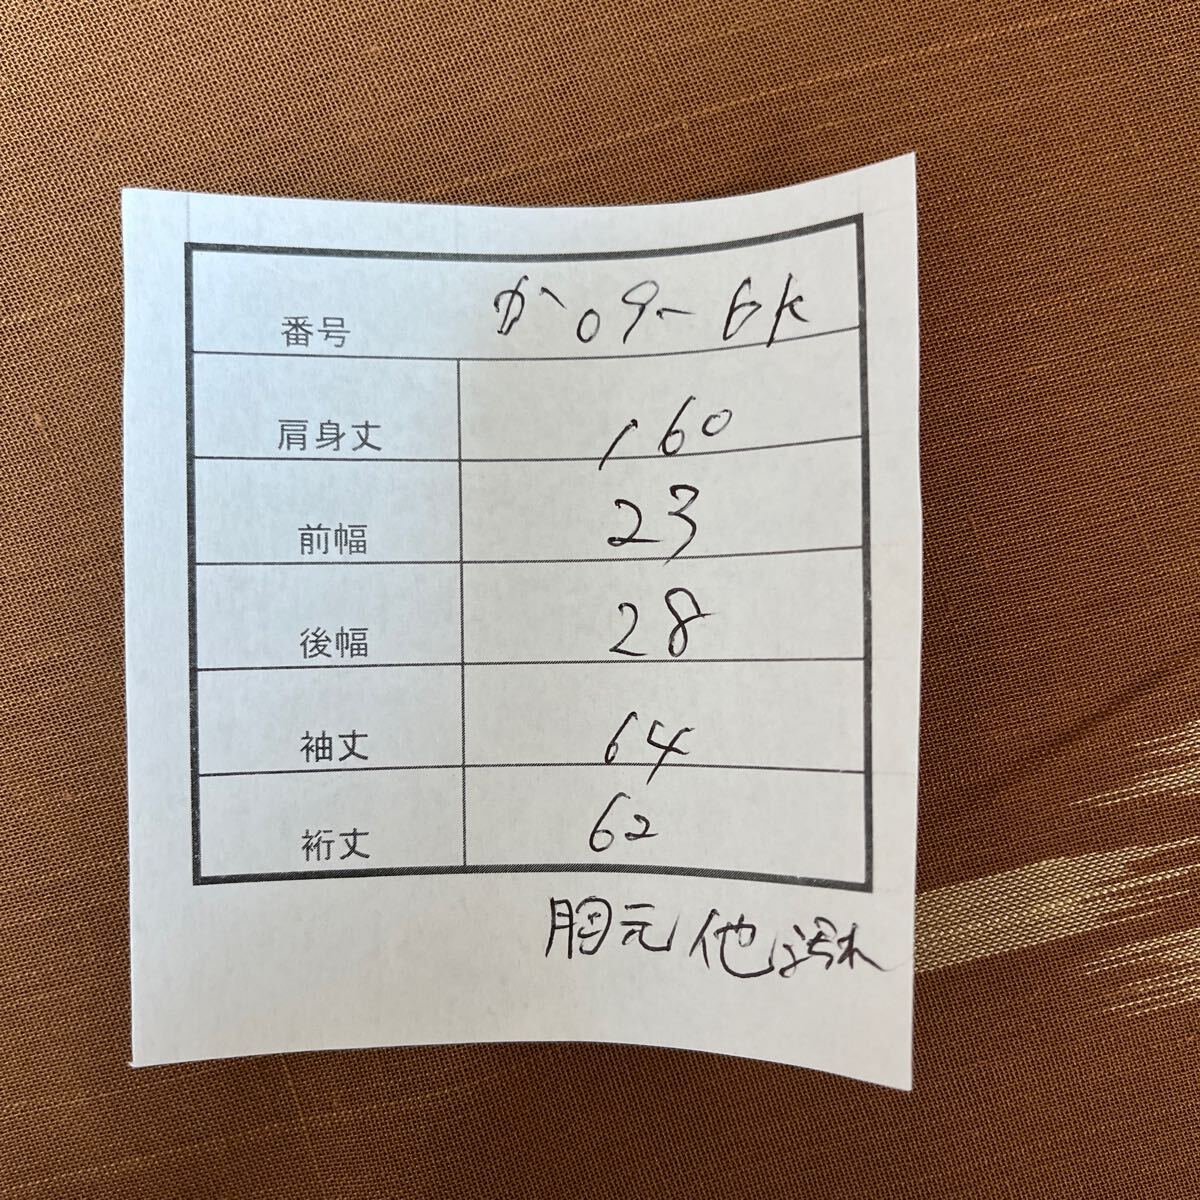 番号 か09-6k
肩身丈 160
前幅 23
後幅 28
袖丈 64
裄丈 62
胸元他汚れ